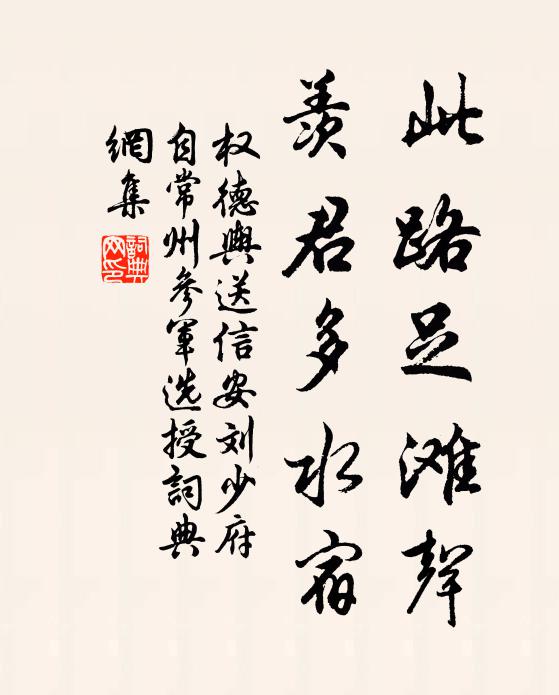 此路足滩声
羡君多水宿
权德舆送信安刘少府
自常州参军选授詞典
網集
詞典網印